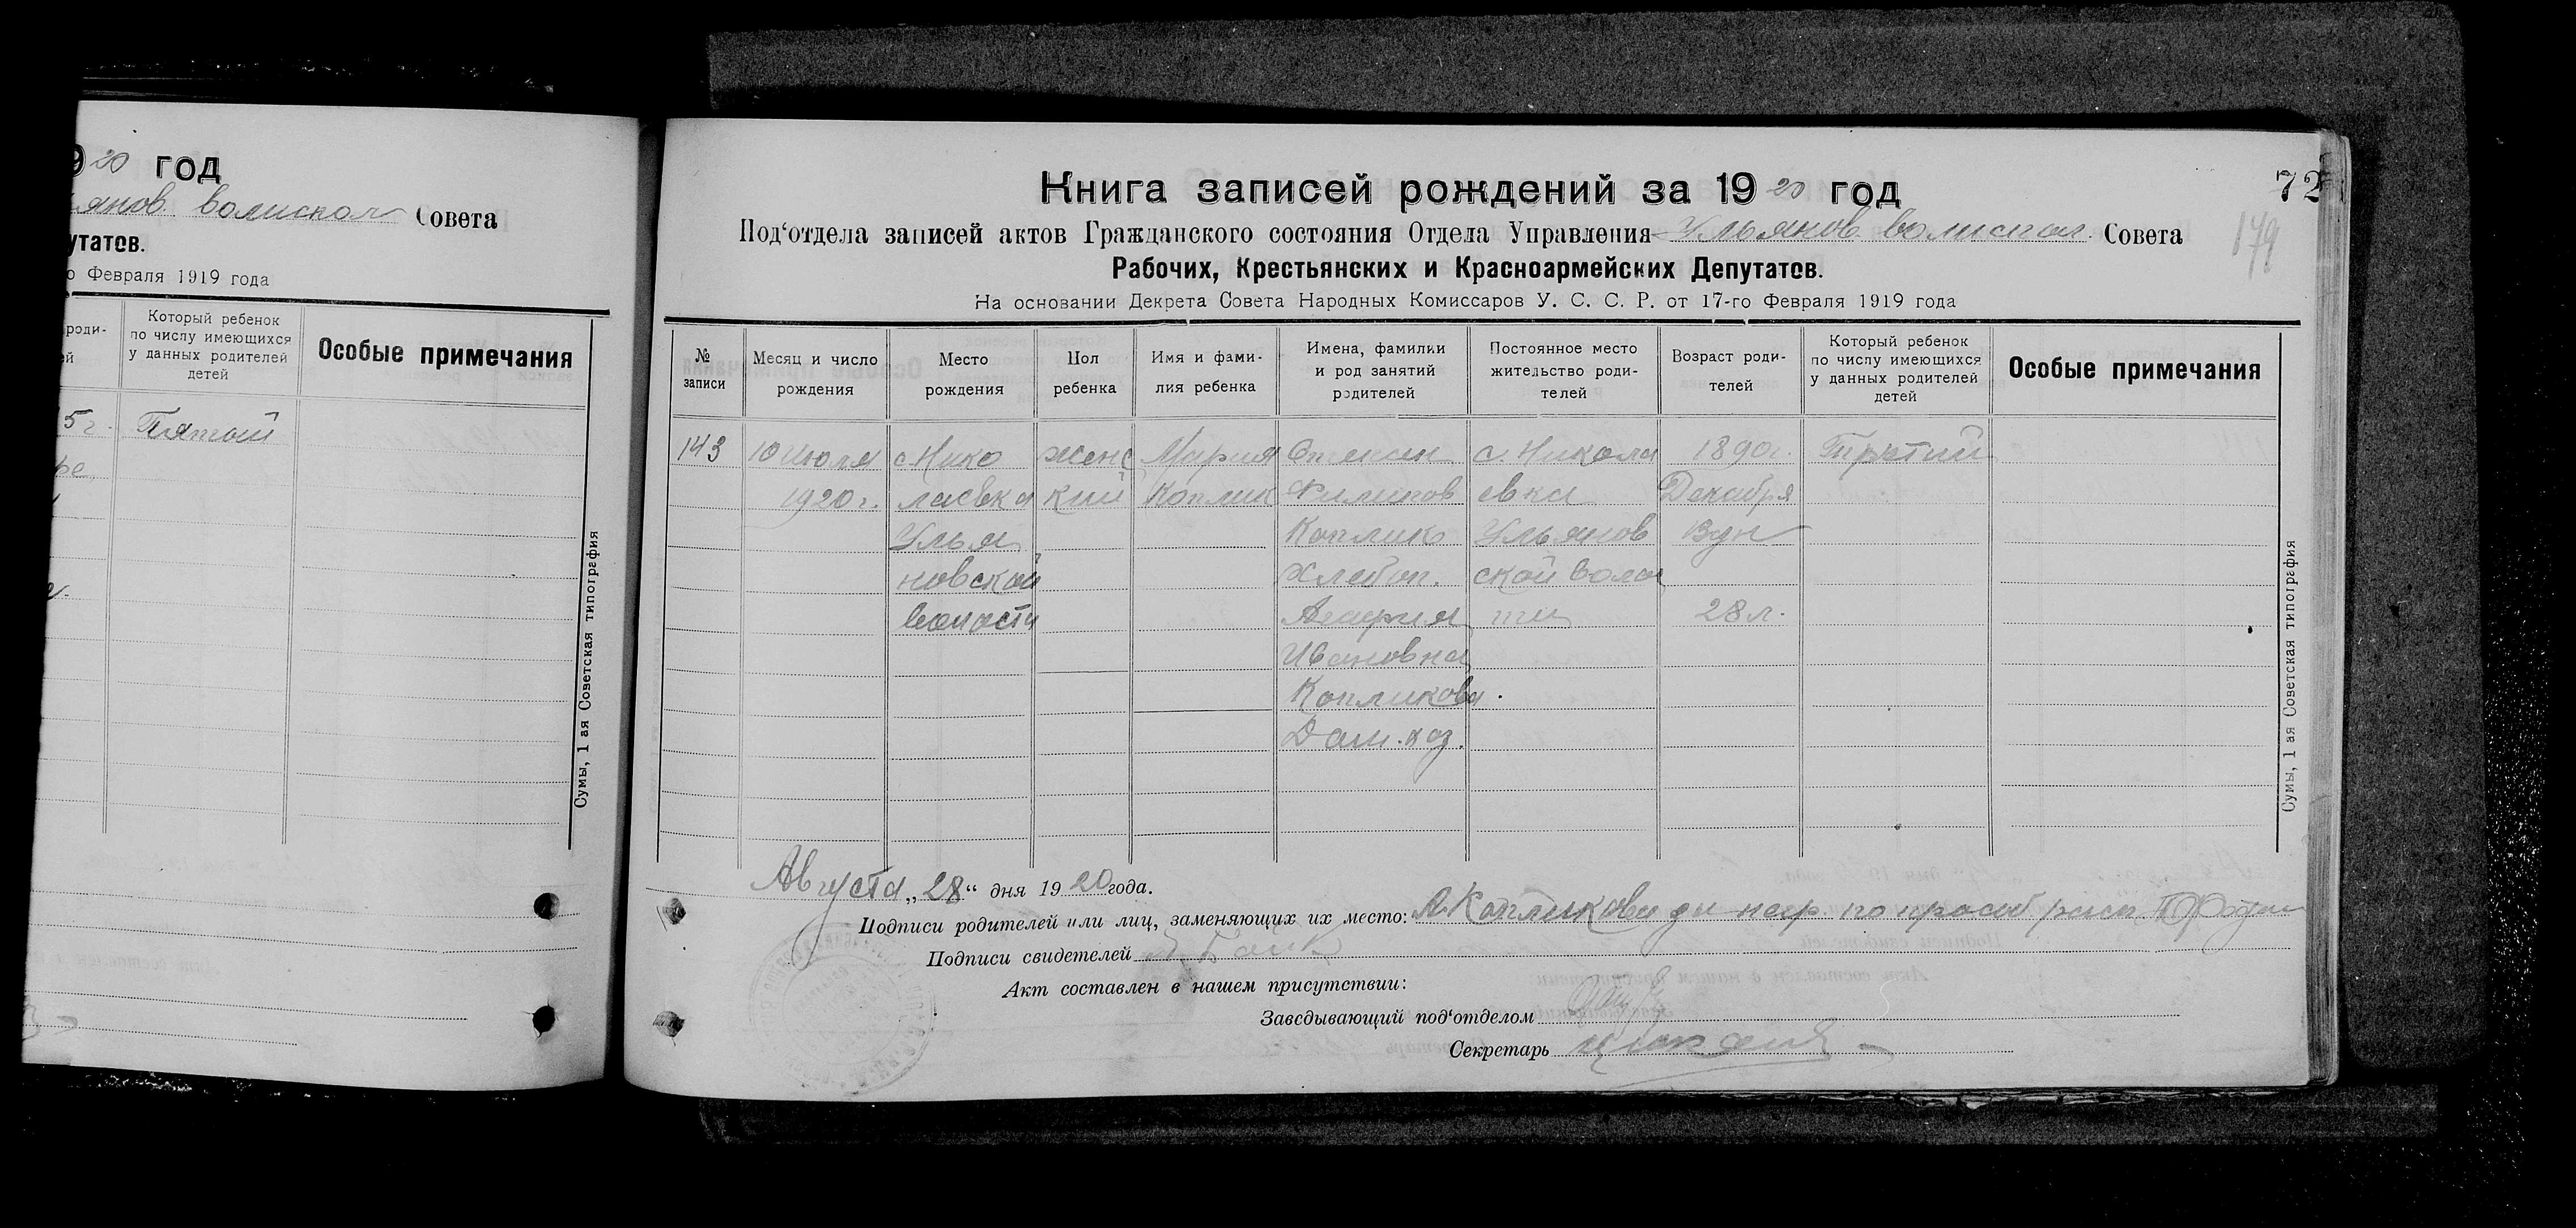 20 год
янов. волиспол Совета
утатов.
о Февраля 1919 года
роди-
ей
Который ребенок
по числу имеющихся
у данных родителей
детей
Особые примечания
5 г. Пятый
Сумы, 1 ая Советская типография
Книга записей рождений за 1920 год
72
Под‘отдела записей актов Гражданского состояния Отдела Управления Ульянов. волиспол. Совета
179
Рабочих, Крестьянских и Красноармейских Депутатов.
На основании Декрета Совета Народных Комиссаров У. С. С. Р. от 17-го Февраля 1919 года
№
записи
Месяц и число
рождения
Место
рождения
Пол
ребенка
Имя и фами-
лия ребенка
Имена, фамилии
и род занятий
родителей
Постоянное место
жительство роди-
телей
Возраст роди-
телей
Который ребенок
по числу имеющихся
у данных родителей
детей
Особые примечания
143 10 Июля с. Нико женс Мария Степан с. Никола 1890 г. Третий
1920 г. лаевка кий Коплик Филипов евка Декабря
Улья Коплик Ульянов 13 дн
новской Хлебоп. ской волос
волости Агафия ти 28 л.
Ивановна
Копликова.
Дом. хоз.
Сумы, 1 ая Советская типография
Августа „28“ дня 1920 года.
Подписи родителей или лиц, заменяющих их место: А. Копликова а по просьб расп.
Подписи свидетелей
Акт составлен в нашем присутствии:
Заведывающий под‘отделом
Секретарь